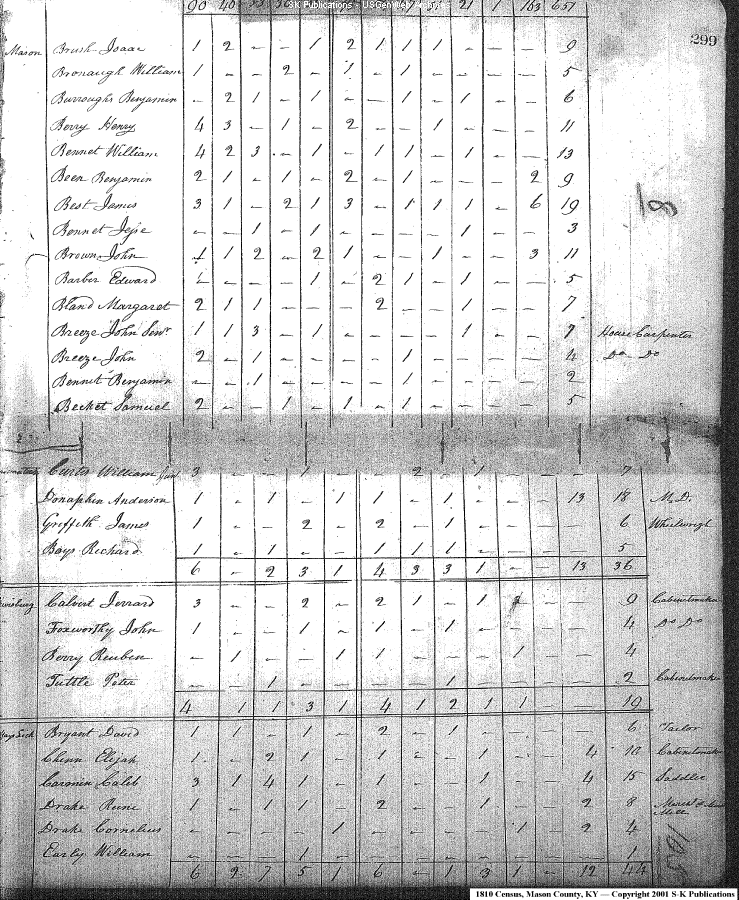 90 40 21 1 163 651
S-K Publications - USGenWeb
299
Mason Brush Isaac 1 2 – – 1 2 1 1 1 – – – – 9
Bronaugh William 1 – – 2 – 1 – 1 – – – – 5
Burroughs Benjamin – 2 1 – 1 – – 1 – 1 – – 6
Berry Henry 4 3 – 1 – 2 – – 1 – – – 11
Bennet William 4 2 3 – 1 – 1 1 – 1 – – 13
Been Benjamin 2 1 – 1 – 2 – 1 – – – 2 9
Best James 3 1 – 2 1 3 – 1 1 1 – 6 19
18
Bennet Jesse – – 1 – 1 – – – – 1 – – 3
Brown John 1 1 2 – 2 1 – – 1 – – 3 11
Barber Edward – – – – 1 – 2 1 – 1 – – 5
Bland Margaret 2 1 1 – – – 2 – – 1 – – 7
Breeze John Senr 1 1 3 – 1 – – – – 1 – – 7 House Carpenter
Breeze John 2 – 1 – – – – 1 – – – – 4 Do Do
Bennet Benjamin – – 1 – – – – 1 – – – – 2
Becket Samuel 2 – – 1 – 1 – 1 – – – – 5
Curtis William Junr 3 – – 1 – – 2 – 1 – – – 7
Donaphin Anderson 1 – 1 – 1 1 – 1 – – – 13 18 M.D.
Griffith James 1 – – 2 – 2 – 1 – – – – 6 Wheelwright
Bays Richard 1 – 1 – – 1 1 1 – – – – 5
6 – 2 3 1 4 3 3 1 – – 13 36
Calvert Jerrard 3 – – 2 – 2 1 – 1 – – 9 Cabinetmaker
Foxworthy John 1 – – 1 – 1 – 1 – – – – 4 Do Do
Berry Reuben – 1 – – 1 1 – – – 1 – – 4
Tuttle Peter – – 1 – – – – 1 – – – – 2 Cabinetmaker
4 1 1 3 1 4 1 2 1 1 – – 19
Bryant David 1 1 – 1 – 2 – 1 – – – – 6 Taylor
Chinn Elijah 1 – 2 1 – 1 – – 1 – – 4 10 Cabinetmaker
Caleb 3 1 4 1 – 1 – – 1 – – 4 15 Saddler
Drake 1 – 1 1 – 2 – – 1 – – 2 8
Drake Cornelius – – – – 1 – – – – 1 – 2 4
Early William – – – 1 – – – – – – – – 1
6 2 7 5 1 6 – 1 3 1 – 12 44
1810 Census, Mason County, KY — Copyright 2001 S-K Publications